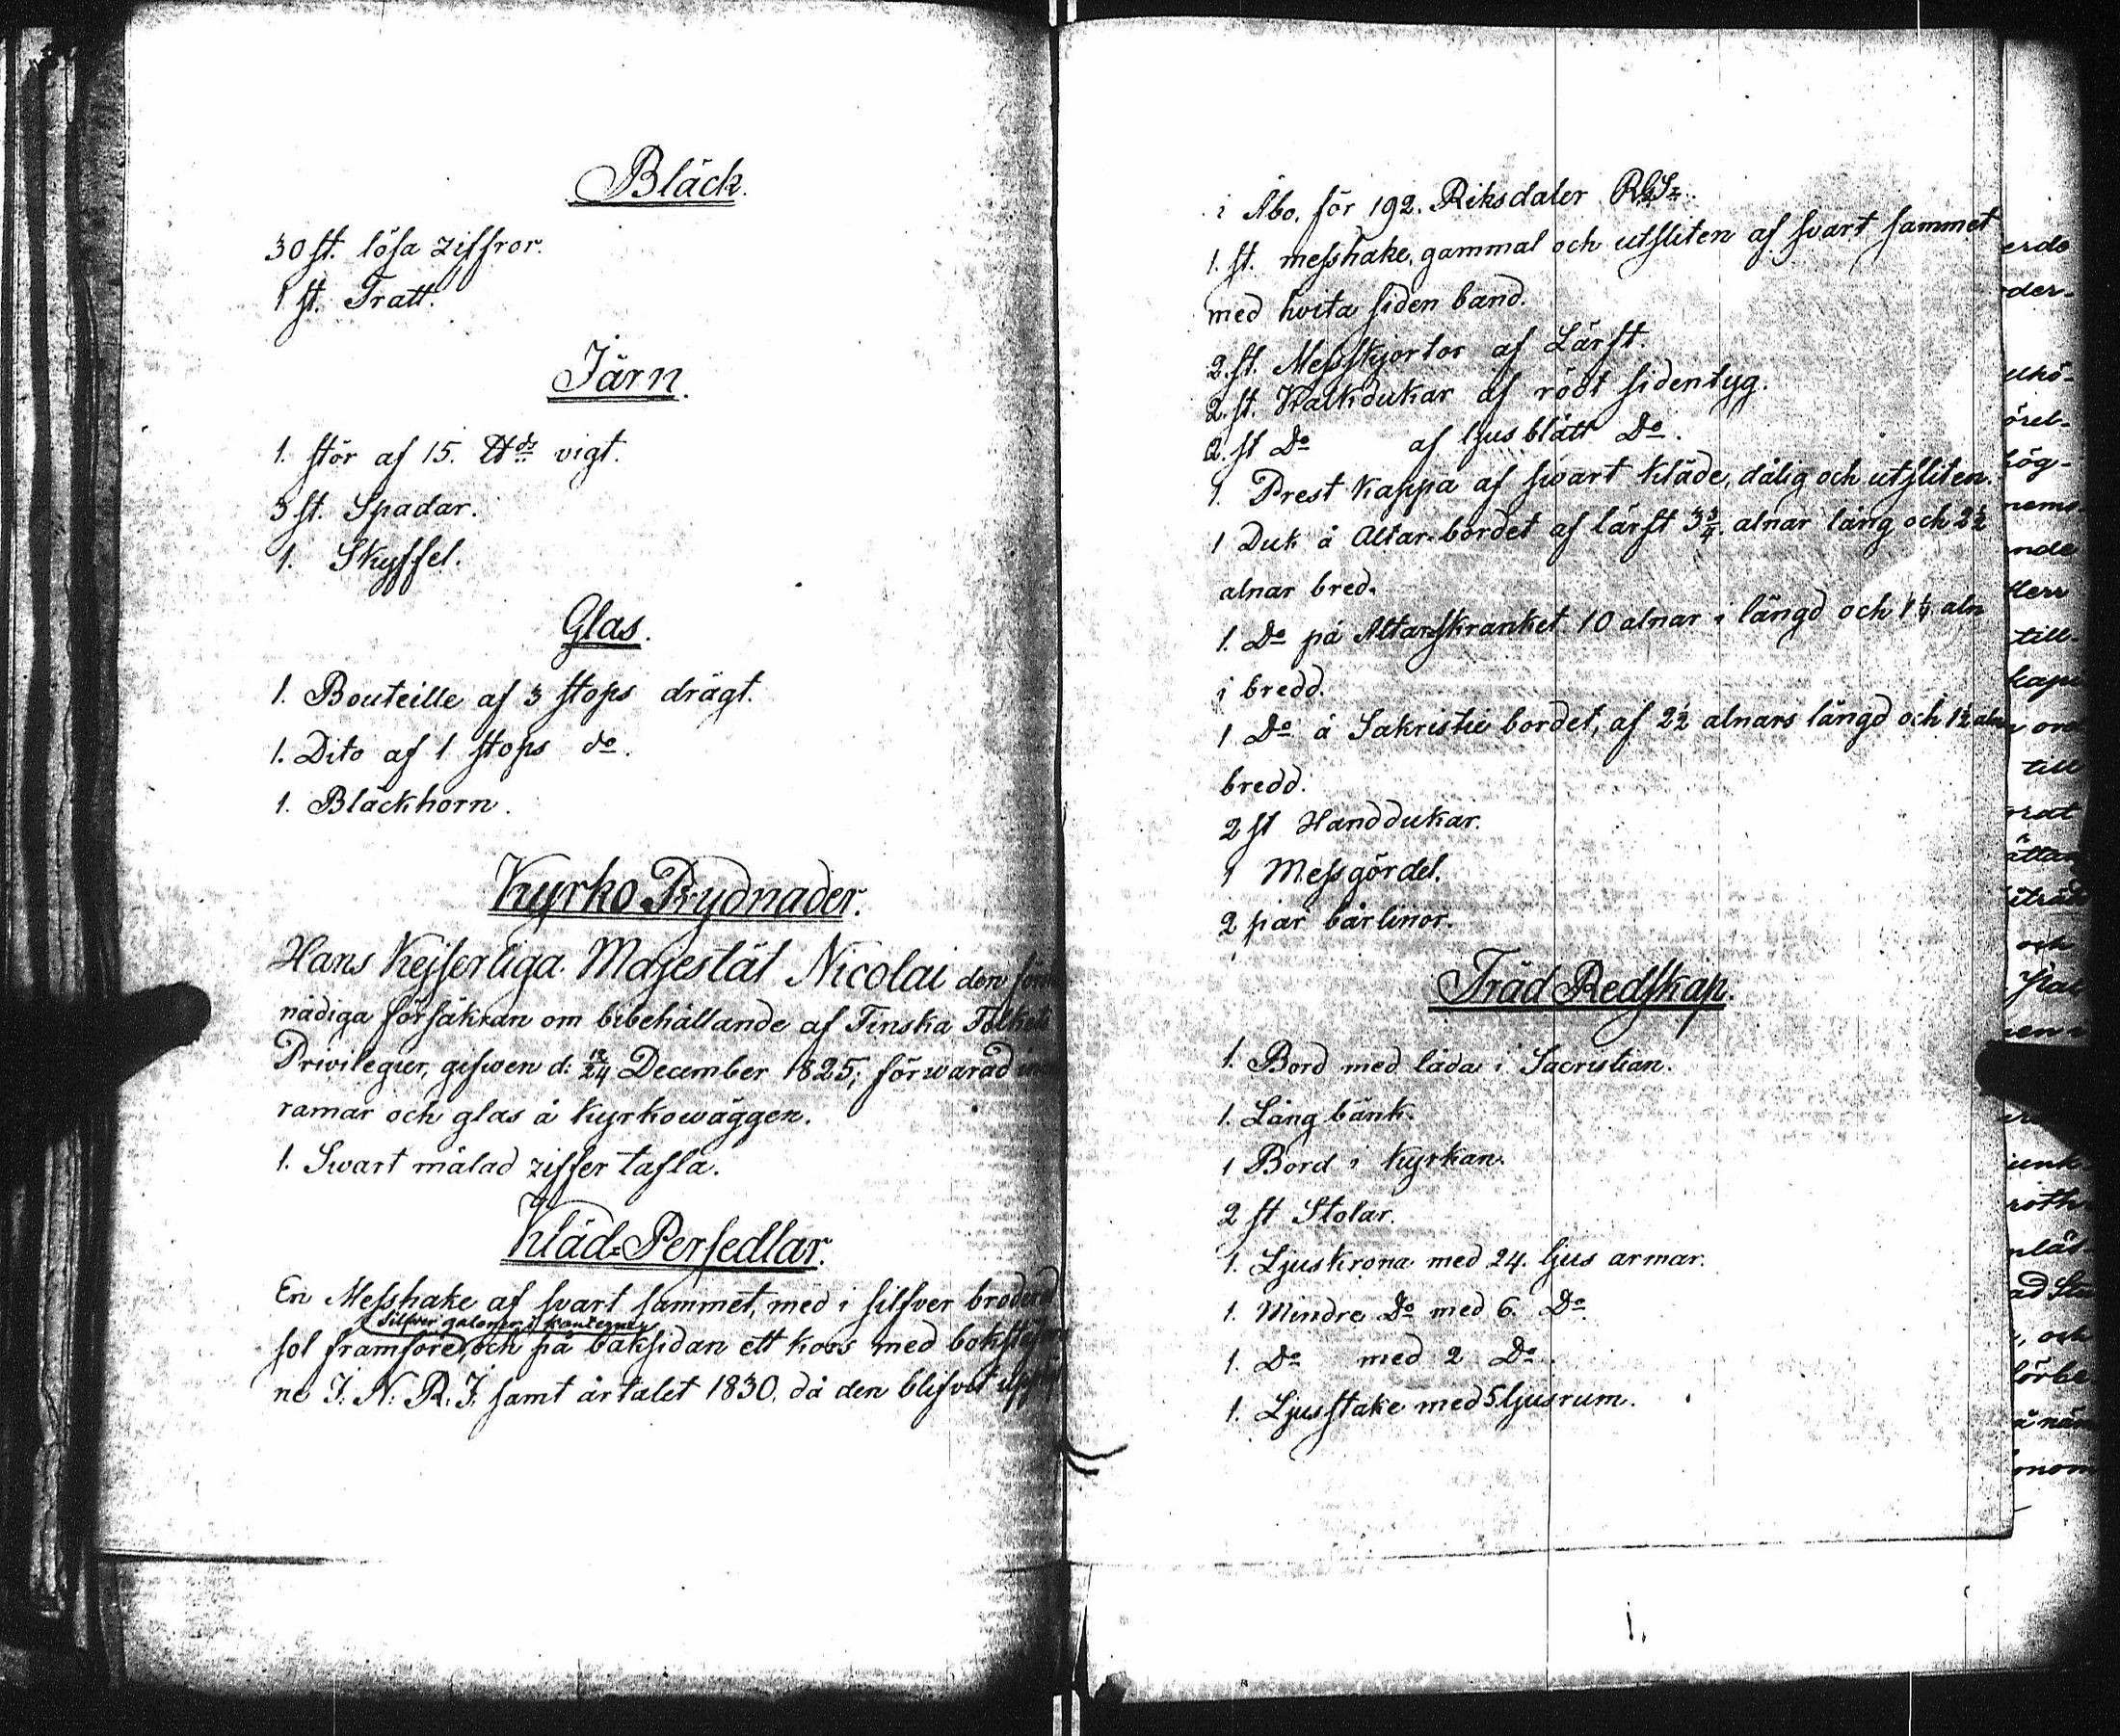 Bläck.
30 st. lösa ziffror.
1 st. Tratt.
Järn.
1. stör af 15. ℔dr vigt.
3 st. Spadar.
1. Skyffel.
Glas.
1. Bouteille af 3 stops drägt.
1. Dito af 1 stops do.
1. Bläckhorn.
Kyrko Prydnader.
Hans Kejserliga Majestät Nicolai den
nådiga försäkran om bibehållande af Finska
Privilegier, gifwen d: 12/24 December 1825; förwarad
ramar och glas å kyrkowäggen.
1. Swart målad ziffer tafla.
Kläd=Persedlar.
En Messhake af svart sammet, med i silfver
silfver galoner i kanterne
sol framföre, och på baksidan ett kors med
ne J. N. R. J. samt årtalet 1830, då den blifvit
i Åbo, för 192. Riksdaler
1. st. messhake, gammal och utsliten af svart sammet
med hvita siden band.
2. st. Messskjortor af Lärft.
2. st. Kalkdukar af rödt sidentyg.
2. st Do af ljusblått Do.
1. Prest kappa af swart kläde, dålig och utsliten.
1 Duk å Altar-bordet af lärft 3 3/4 alnar lång och 2 1/2
alnar bred.
1. Do på Altarskranket 10 alnar i längd och 1 1/4 aln
i bredd.
1 Do å Sakristie bordet, af 2 1/2 alnars längd och 1 1/2 aln
bredd.
2 st Handdukar.
1 Messgördel.
2 par bårlinor.
Träd Redskap.
1. Bord med låda i Sacristian.
1. Lång bänk.
1 Bord i kyrkan.
2 st Stolar.
1. Ljuskrona med 24. ljus armar.
1. Mindre Do med 6. Do
1. Do med 2 Do.
1. Ljusstake med 5 ljusrum.